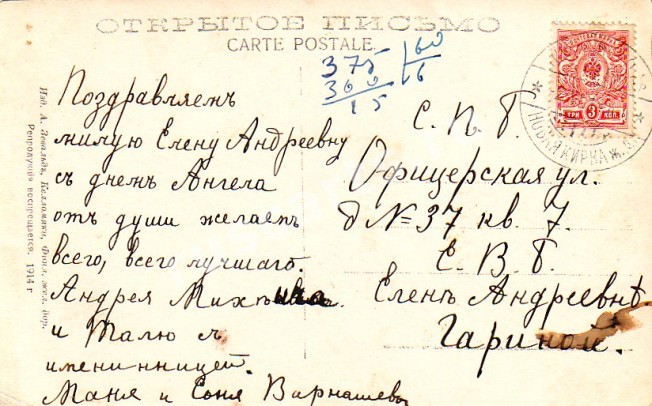 ОТКРЫТОЕ ПИСЬМО
CARTE POSTALE.
375 60
360 6
15
Поздравляемъ
милую Елену Андреевну
съ днемъ Ангела
отъ души желаемъ
всего, всего лучшаго.
Андрея
и Талю съ
именинницей.
Маня и Соня Варнашевы
С. П. Б.
Офицерская ул.
д № 37 кв. 7.
Е. В. Б.
Еленѣ Андреевнѣ
Гариной.
ТРИ 3 КОП.
НОВАЯ КИРКА Ж.
Изд. А. Зевальдъ, Келломяки, Финл. жел. дор.
Репродукція воспрещается. 1914 г